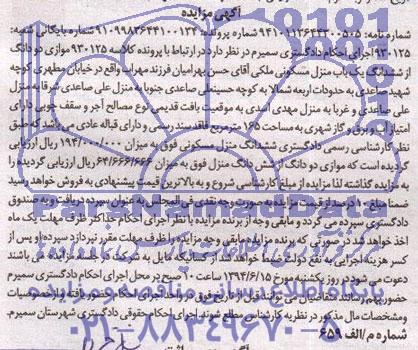 آگهی مزایده
شماره نامه: ۹۴۱۰۱۱۲۶۴۳۳۰۰۵۰۵ شماره پرونده: ۹۱۰۹۹۸۳۶۴۴۱۰۰۱۳۴ شماره بایگانی شعبه:
۹۳۰۱۲۵ اجرای احکام دادگستری سمیرم در نظر دارد در ارتباط با پرونده کلاسه ۹۳۰۱۲۵ موازی دو دانگ
از ششدانگ یک باب منزل مسکونی ملکی آقای حسن بهرامیان فرزند سهراب واقع در خیابان مطهری کوچه
شهید صاعدی به حدودات اربعه شمالا به کوچه حسینعلی صاعدی جنوبا به منزل علی صاعدی شرقا به منزل
علی صاعدی و غربا به منزل مهدی اسدی به موقعیت بافت قدیمی نوع مصالح آجر و سقف چوبی دارای
امتیاز آب و برق و گاز شهری به مساحت ۱۴۵ مترمربع فاقد سند رسمی و دارای قباله عادی می باشد که طبق
نظر کارشناسی رسمی دادگستری ششدانگ منزل مسکونی فوق به میزان ۱۹۴/۰۰۰/۰۰۰ ریال ارزیابی
گردیده است که موازی دو دانگ از شش دانگ منزل فوق به میزان ۶۴/۶۶۶/۶۶۶ ریال ارزیابی گردیده را
به مزایده گذاشته لذا مزایده از مبلغ کارشناسی شروع و به بالاترین قیمت پیشنهادی به فروش خواهد رسید
ضمنا مبلغ ۱۰ درصد از قیمت مزایده به صورت وجه نقد فی المجلس به عنوان سپرده دریافت و به صندوق
دادگستری سپرده می گردد و مابقی وجه از برنده مزایده با نظر اجرای احکام حداکثر ظرف مهلت یک ماه
اخذ خواهد شد در صورتی که برنده مزایده مابقی وجه مزایده را ظرف مهلت مقرر نپردازد سپرده او پس از
کسر هزینه اجرایی به نفع دولت ضبط خواهد شد از کسانیکه مایل به شرکت در جلسه مزایده می باشند
دعوت می شود در روز یکشنبه مورخ ۱۳۹۴/۶/۱۵ ساعت ۱۰ صبح در محل اجرای احکام دادگستری سمیرم
حضور بهم رسانند متقاضیان می توانند قبل از تاریخ فوق در واحد اجرای احکام حضور یافته و از خصوصیات
و مشخصات مال مذکور در نظریه کارشناسی مطلع شوند. اجرای احکام حقوقی دادگستری شهرستان سمیرم.
شماره م/الف ۶۵۹
ParsNamadData
پایگاه اطلاع رسانی مناقصه و مزایده
۰۲۱-۸۸۳۴۹۶۷۰